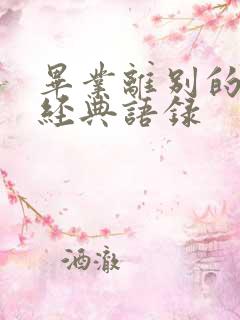 畢業離別的
經典語錄
酒澈